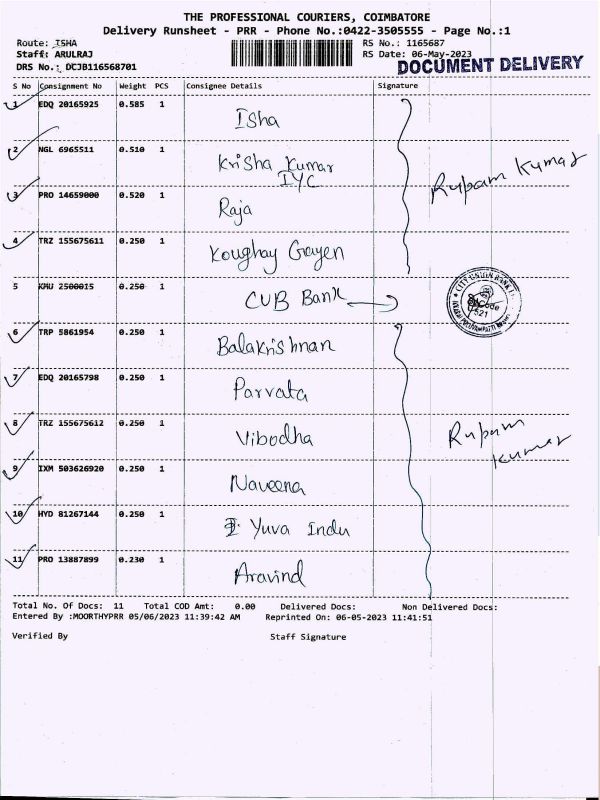 THE PROFESSIONAL COURIERS, COIMBATORE
Delivery Runsheet - PRR - Phone No.:0422-3505555 - Page No.:1
Route: ISHA
RS No.: 1165687
Staff: ARULRAJ
RS Date: 06-May-2023
DRS No.: DCJB116568701
DOCUMENT DELIVERY
S No Consignment No Weight PCS Consignee Details Signature
1 EDQ 20165925 0.585 1 Isha
2 NGL 6965511 0.510 1 Krisha Kumar
IYC
Rupam Kumar
3 PRO 14659000 0.520 1 Raja
4 TRZ 155675611 0.250 1 Koughay Gayen
5 KMU 2500015 0.250 1 CUB Bank
CITY UNION BANK
6 TRP 5861954 0.250 1 Balakrishnan
7 EDQ 20165798 0.250 1 Parvata
8 TRZ 155675612 0.250 1 Vibodha
Rupam
Kumar
9 IXM 503626920 0.250 1 Naveena
10 HYD 81267144 0.250 1 Yuva Indu
11 PRO 13887899 0.230 1 Aravind
Total No. Of Docs: 11 Total COD Amt: 0.00 Delivered Docs: Non Delivered Docs:
Entered By :MOORTHYPRR 05/06/2023 11:39:42 AM Reprinted On: 06-05-2023 11:41:51
Verified By Staff Signature